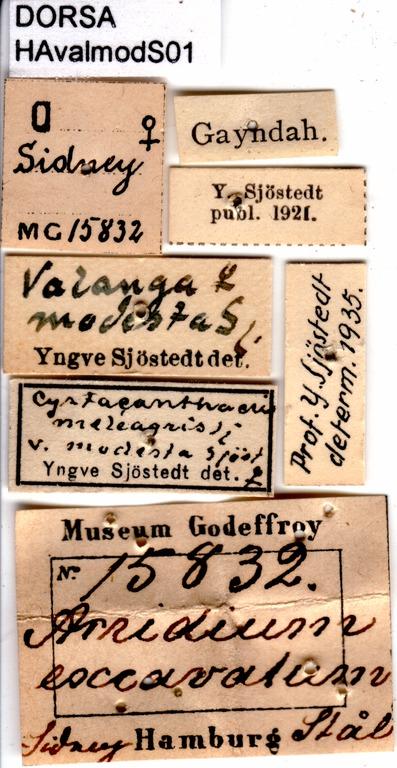 DORSA
HAvalmodS01
0 ♀
Sidney
MG 15832
Gayndah.
Y. Sjöstedt
publ. 1921.
Valanga ♀
modesta Sj.
Yngve Sjöstedt det.
Prof. Y. Sjöstedt
determ. 1935.
Cyrtacanthacris
meleagris Sj
v. modesta Sjöst
Yngve Sjöstedt det. ♀
Museum Godeffroy
No. 15832.
Acridium
excavatum
Sidney Hamburg Stål